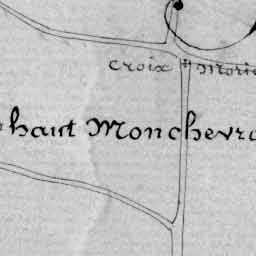 croix Morie
haut Monchevra